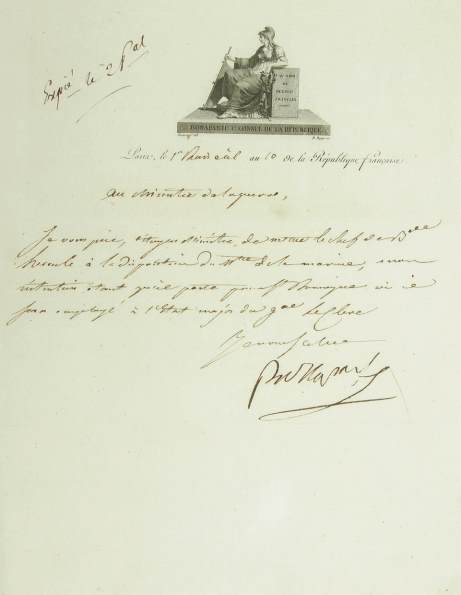 Expé le 2 Pal
AU NOM
DU
PEUPLE
FRANÇAIS
BONAPARTE 1er CONSUL DE LA RÉPUBLIQUE
Paris, le 1er an 10 de la République française.
au Ministre de la guerre,
Je vous prie, citoyen Ministre, de mettre le chef de Bon
hercule à la disposition du Mtre de la marine, mon
intention étant qu'il parte pour St Domingue où il
sera employé à l'Etat major du gal Le Clerc
Je vous salue